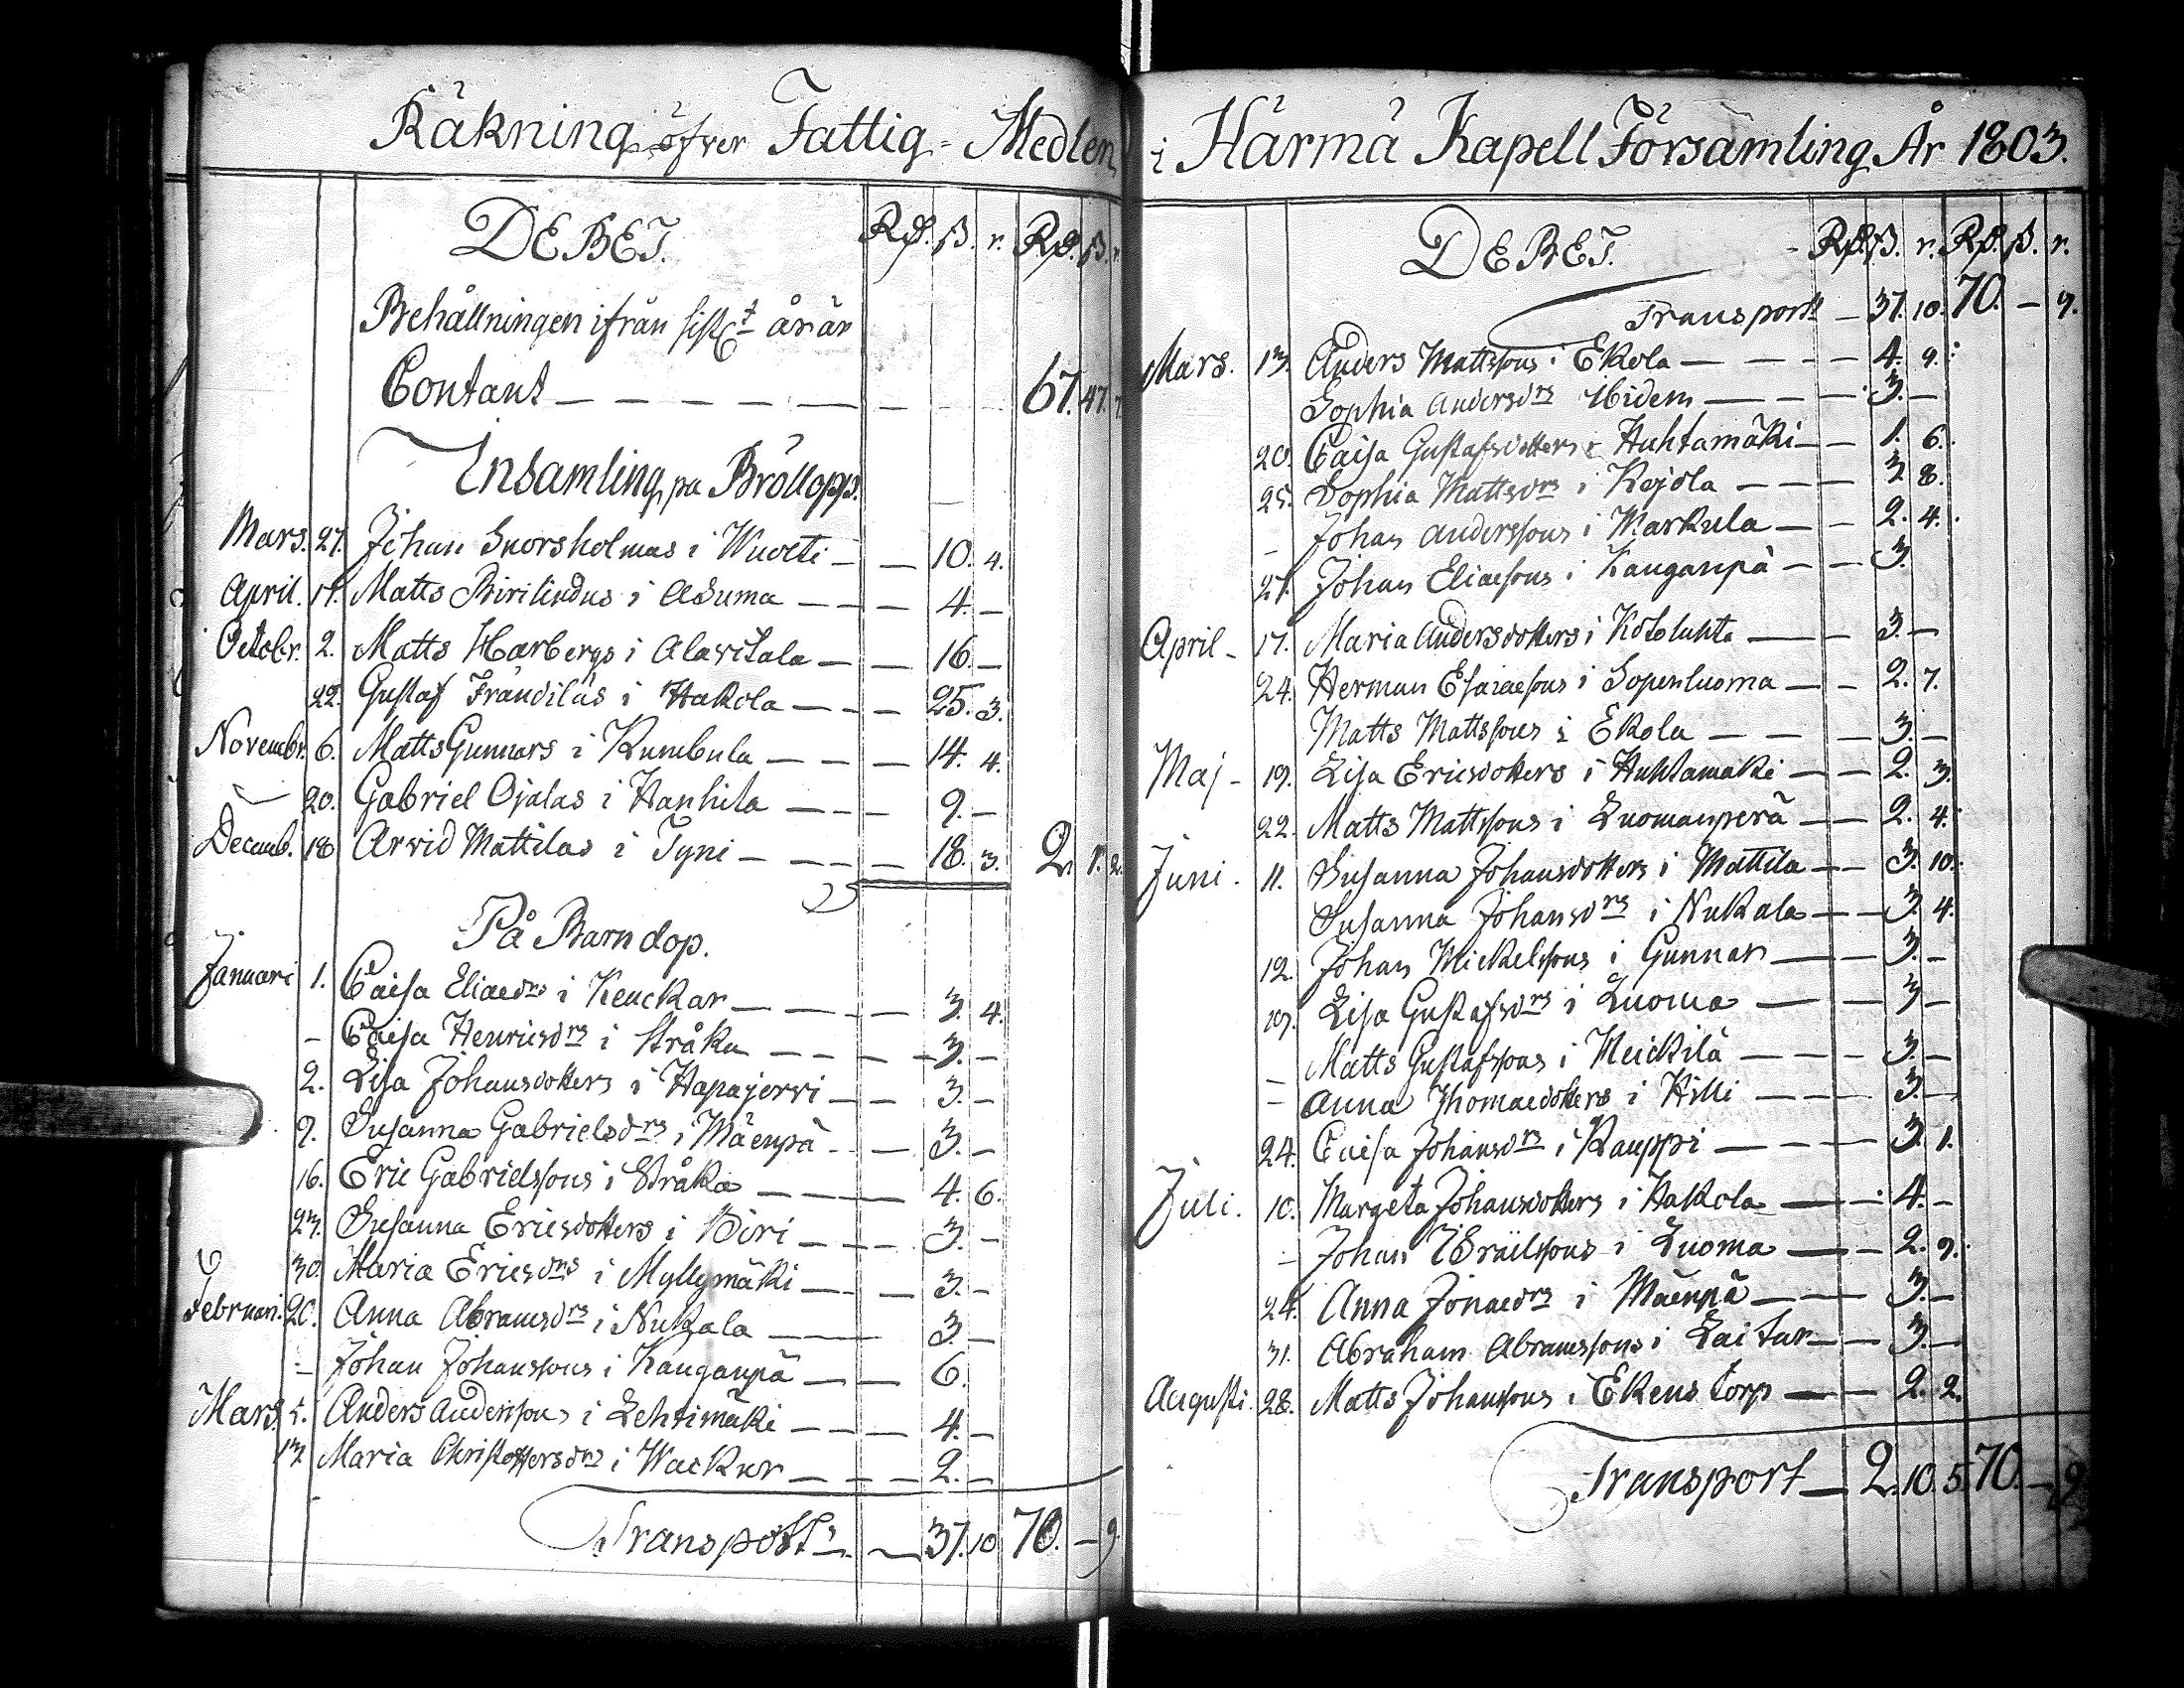 Räkning öfver Fattig-Medlen
DEBET. Rd. ß. r. Rd. ß. r.
Behållningen ifrån sistl. år är
Contant — — — — — — 67. 47. 7.
Insamling på Bröllopp.
Mars. 27. Johan Snorsholmas i Wuolti — — 10. 4.
April. 17. Matts Pirilindus i Asuma — — — 4. —
Octobr. 2. Matts Harbergs i Alawitala — — 16. —
22. Gustaf Frändiläs i Hakola — — — 25. 3.
Novembr. 6. Matts Gunnars i Kumbula — — — 14. 4.
— 20. Gabriel Ojalas i Hanhila — — — 9. —
Decemb. 18 Arvid Mattilas i Tyni — — — — 18. 3. 2. 1. 2.
På Barndop.
Januari 1. Caisa Eliaedrs i Keuckar — — — — 3. 4.
— Caisa Henricsdrs i Stråka — — — — 3. —
2. Lisa Johansdotters i Hapajervi — — 3. —
9. Susanna Gabrielsdrs i Mäenpä — — 3. —
16. Eric Gabrielssons i Stråka — — — 4. 6.
23. Susanna Ericsdotters i Piri — — — 3. —
30. Maria Ericsdrs i Myllymäki — — — 3. —
Februari. 20. Anna Abramsdrs i Nukala — — 3. —
— Johan Johanssons i Kanganpä — — 6.
Mars. 5. Anders Anderssons i Lehtimäki — — — 4. —
13. Maria Christoffersdrs i Wackur — — — 2. —
Transport — — 37. 10 70. — 9.
i Härmä Kapell Församling År 1803.
DEBET. Rd. ß. r. Rd. ß. r.
Transport — 37. 10. 70. — 9.
Mars. 13. Anders Mattssons i Ekola — — — — 4. 9.
Sophia Andersdrs Ibidem — — — 3. —
20. Caisa Gustafsdotters i Huhtamäki — — 1. 6.
25. Sophia Mattsdrs i Kojola — — — 3 8.
— Johan Anderssons i Markula — — 2. 4.
27. Johan Eliaesons i Kanganpä — — 3.
April — 17. Maria Andersdotters i Kotoluhta — — 3. —
24. Herman Esaiaesons i Sopenluoma — — 2. 7.
Matts Mattssons i Ekola — — — 3. —
Maj — 19. Lisa Ericsdotters i Huhtamäki — — 2. 3.
22. Matts Mattssons i Luomanperä — — 2. 4.
Juni. 11. Susanna Johansdotters i Mattila — — 3. 10.
Susanna Johansdrs i Nukala — — 3. 4.
12. Johan Mickelssons i Gunnar — — 3. —
19. Lisa Gustafsdrs i Luoma — — 3 —
— Matts Gustafssons i Meickilä — — — 3. —
— Anna Thomaedotters i Killi — — — 3. —
24. Caisa Johansdrs i Kauppi — — — 3. 1.
Juli. 10. Margeta Johansdotters i Hakola — — 4. —
— Johan Isräilssons i Luoma — — 2. 9.
24. Anna Jonaedrs i Mäenpä — — 3. —
31. Abraham Abramssons i Laitur — — 3. —
Augusti. 28. Matts Johanssons i Ekens torp — — 2. 2.
Transport — 2. 10. 5. 70. — 9